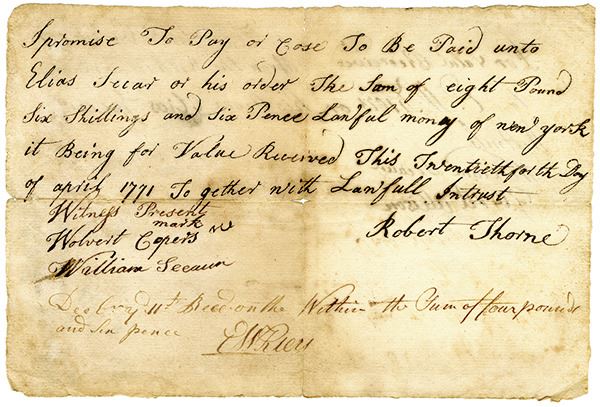 I promise To Pay or Cose To Be Paid unto
Elias Secar or his order The Sum of eight Pound
Six Shillings and six Pence Lawful money of new york
it Being for Value Received This Twentieth forth Day
of april 1771 To gether with Lawfull Intrust
Witness Present
mark
Wolvert Copers
Robert Thorne
William
11t on the Within the Sum of four pounds
and six pence